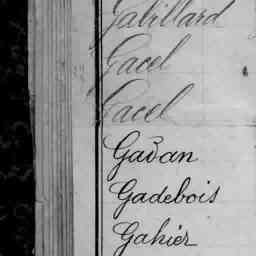 Gabillard
Gacel
Gacel
Gadan
Gadebois
Gahier